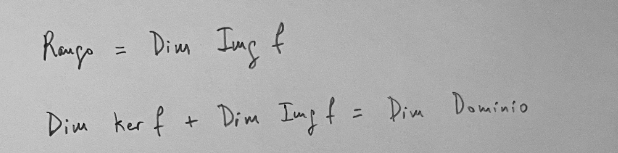 Rango = Dim Img f
Dim ker f + Dim Img f = Dim Dominio